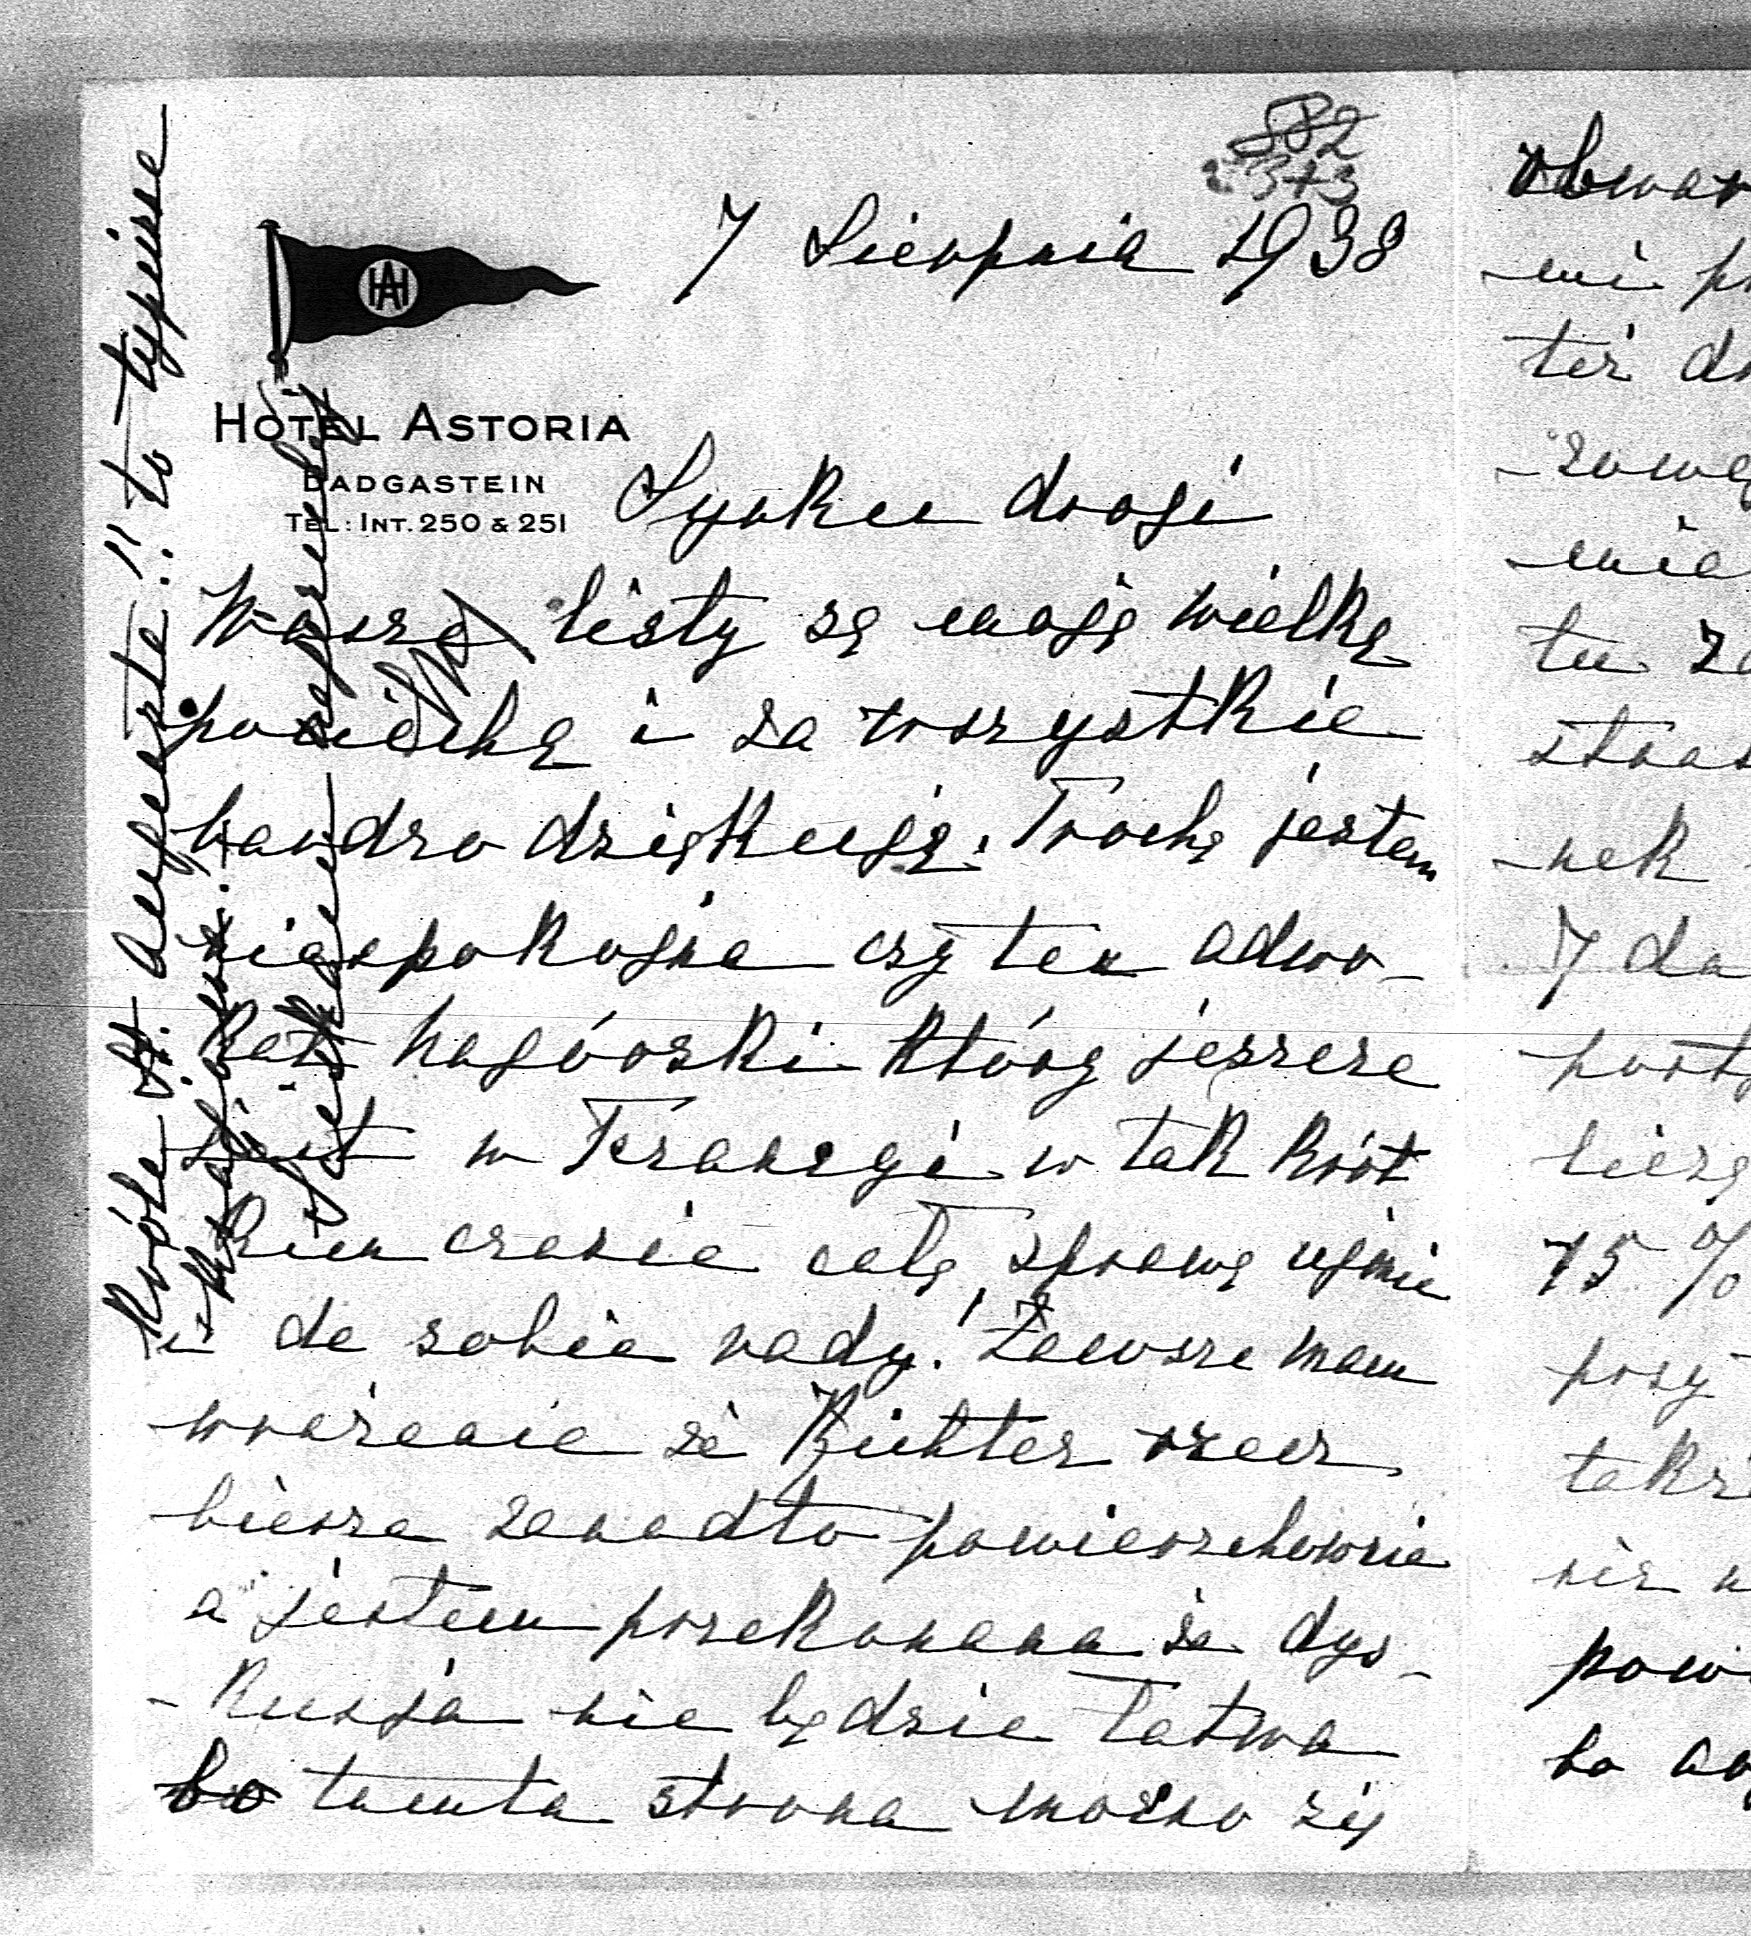 582
3+3
7 Sierpnia 1938
HA
HOTEL ASTORIA
BADGASTEIN
TEL: INT. 250 & 251
Synku drogi
Wasze listy są moją wielką
pociechą i za wszystkie
bardzo dziękuję. Trochę jestem
niespokojna czy ten adwo-
kat Nagórski który jeszcze
jest w Francyi w tak krót
kim czasie całą sprawę ujmie
i da sobie rady! Zawsze mam
wrażenie że Richter rzecz
bierze zanadto powierzchownie
a jestem przekonana że dys-
-kusja nie będzie łatwa
bo tamta strona mocno się
Króle st. Auguste!! to typisse
obwar
-mi pr
też do
-zową
mia
tu za
stras
-nek
7 da
port
liczą
75 %
przy
takż
nie
powi
bo